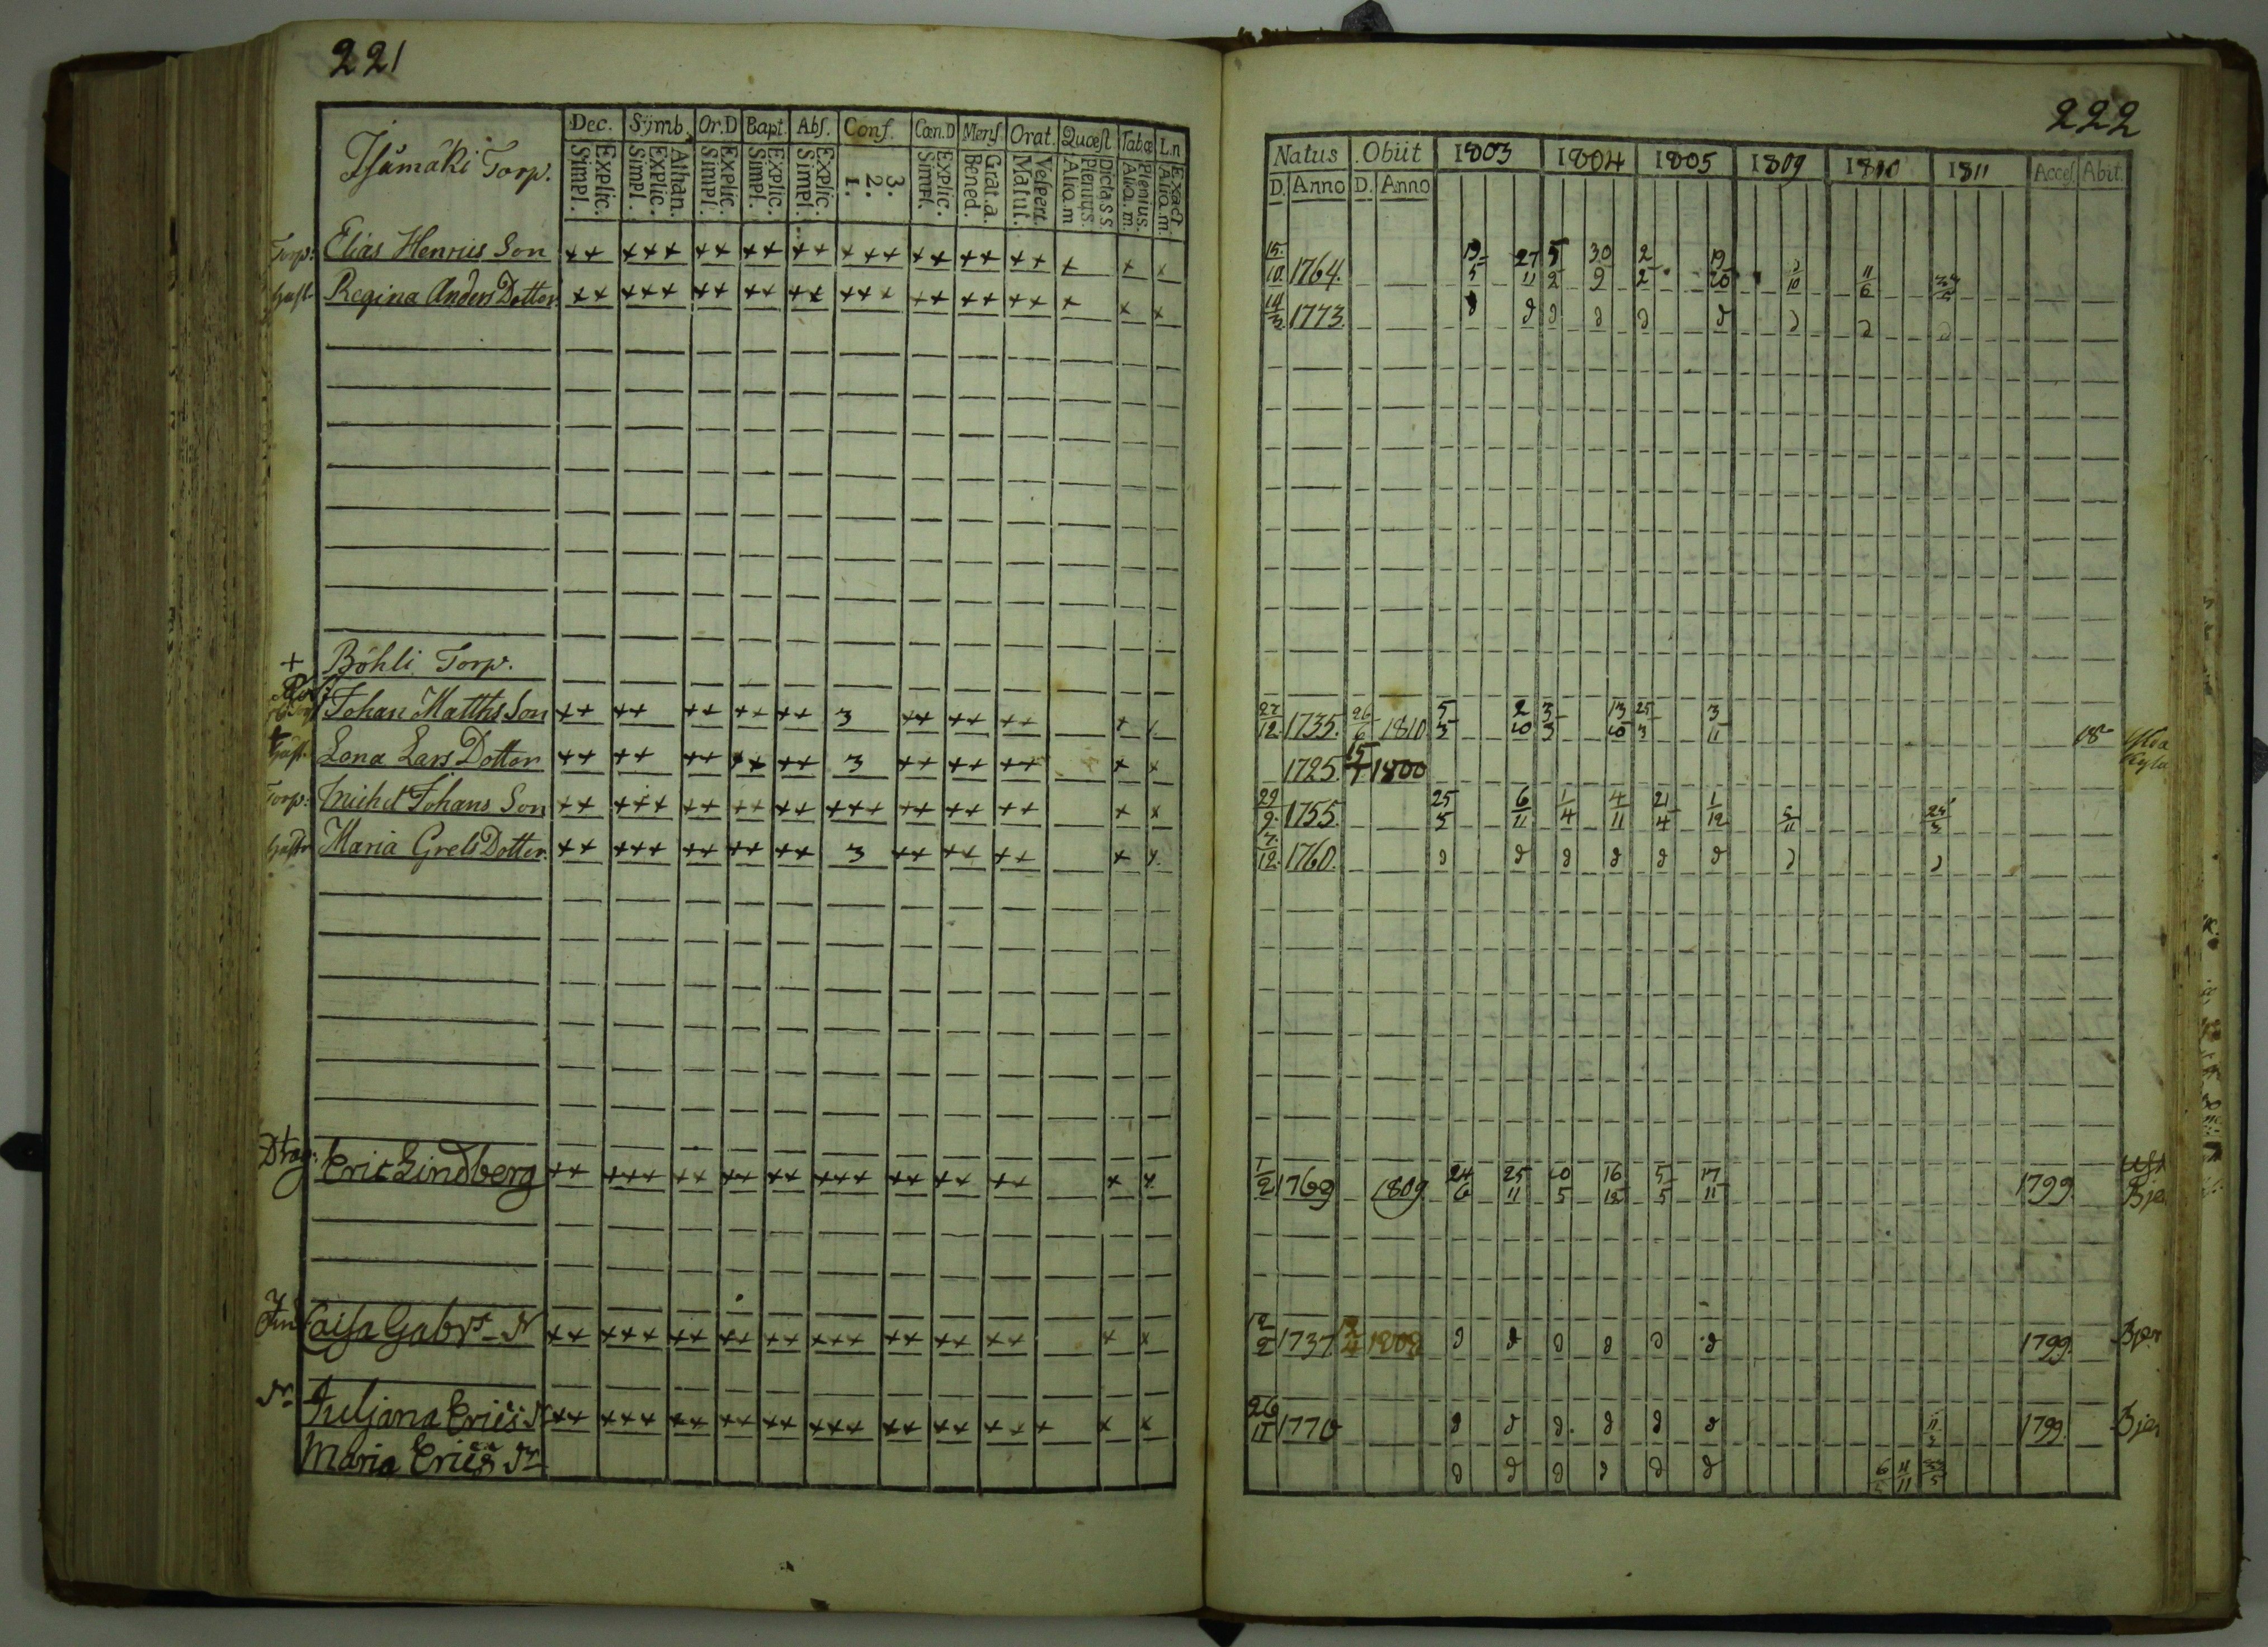 221
Isumäki Torp. Dec. Symb. Or.D Bapt. Abs. Conf. Cœn.D Mens. Orat. Quæst Tabæ L.n
Simpl. Explic. Simpl. Explic. Athan. Simpl. Explic. Simpl. Explic. Simpl. Explic. 1. 2. 3. Simpl. Explic. Bened. Grat.a. Matut. Vespert. Aliq.m Plenius. Dictas S. Aliq.m. Plenius. Aliq.m. Exact
Torp: Elias Henrics Son ++ +++ ++ ++ ++ +++ ++ ++ ++ + + +
Hust. Regina Anders Dotter ++ +++ ++ ++ ++ +++ ++ ++ ++ + + +
+ Böhli Torp.
Johan Matths Son ++ ++ ++ ++ ++ 3 ++ ++ ++ + +
Hust. Lena Lars Dotter ++ ++ ++ ++ ++ 3 ++ ++ ++ + +
Torp: Michel Johans Son ++ +++ ++ ++ ++ +++ ++ ++ ++ + +
Hustr Maria Grels Dotter. ++ +++ ++ ++ ++ 3 ++ ++ ++ + +
Drag: Eric Lindberg ++ +++ ++ ++ ++ +++ ++ ++ ++ + +
Caisa Gabrs Dr ++ +++ ++ ++ ++ +++ ++ ++ ++ + +
Dr Juljana Erics D ++ +++ ++ ++ ++ +++ ++ ++ +++ + +
Maria Erics Dr
222
Natus Obiit 1803 1804 1805 1809 1810 1811 Acces Abit.
D. Anno D. Anno
15/10 1764. 19/5 27/11 5/2 30/9 2/2 19/10 11/6
14/3 1773.
27/12 1735. 26/6 1810 5/3 2/10 3/3 13/10 25/3 3/11
1725. 15/7 1800
29/9 1755. 25/5 6/11 1/4 4/11 21/4 1/12 5/11 25/3
7/12 1760.
1/2 1769 1809 24/6 25/11 10/5 16/12 5/5 17/11 1799. Bje
12/2 1737 1808 1799. Bjer
26/11 1770 11/2 1799. Bjer
6/5 11/11